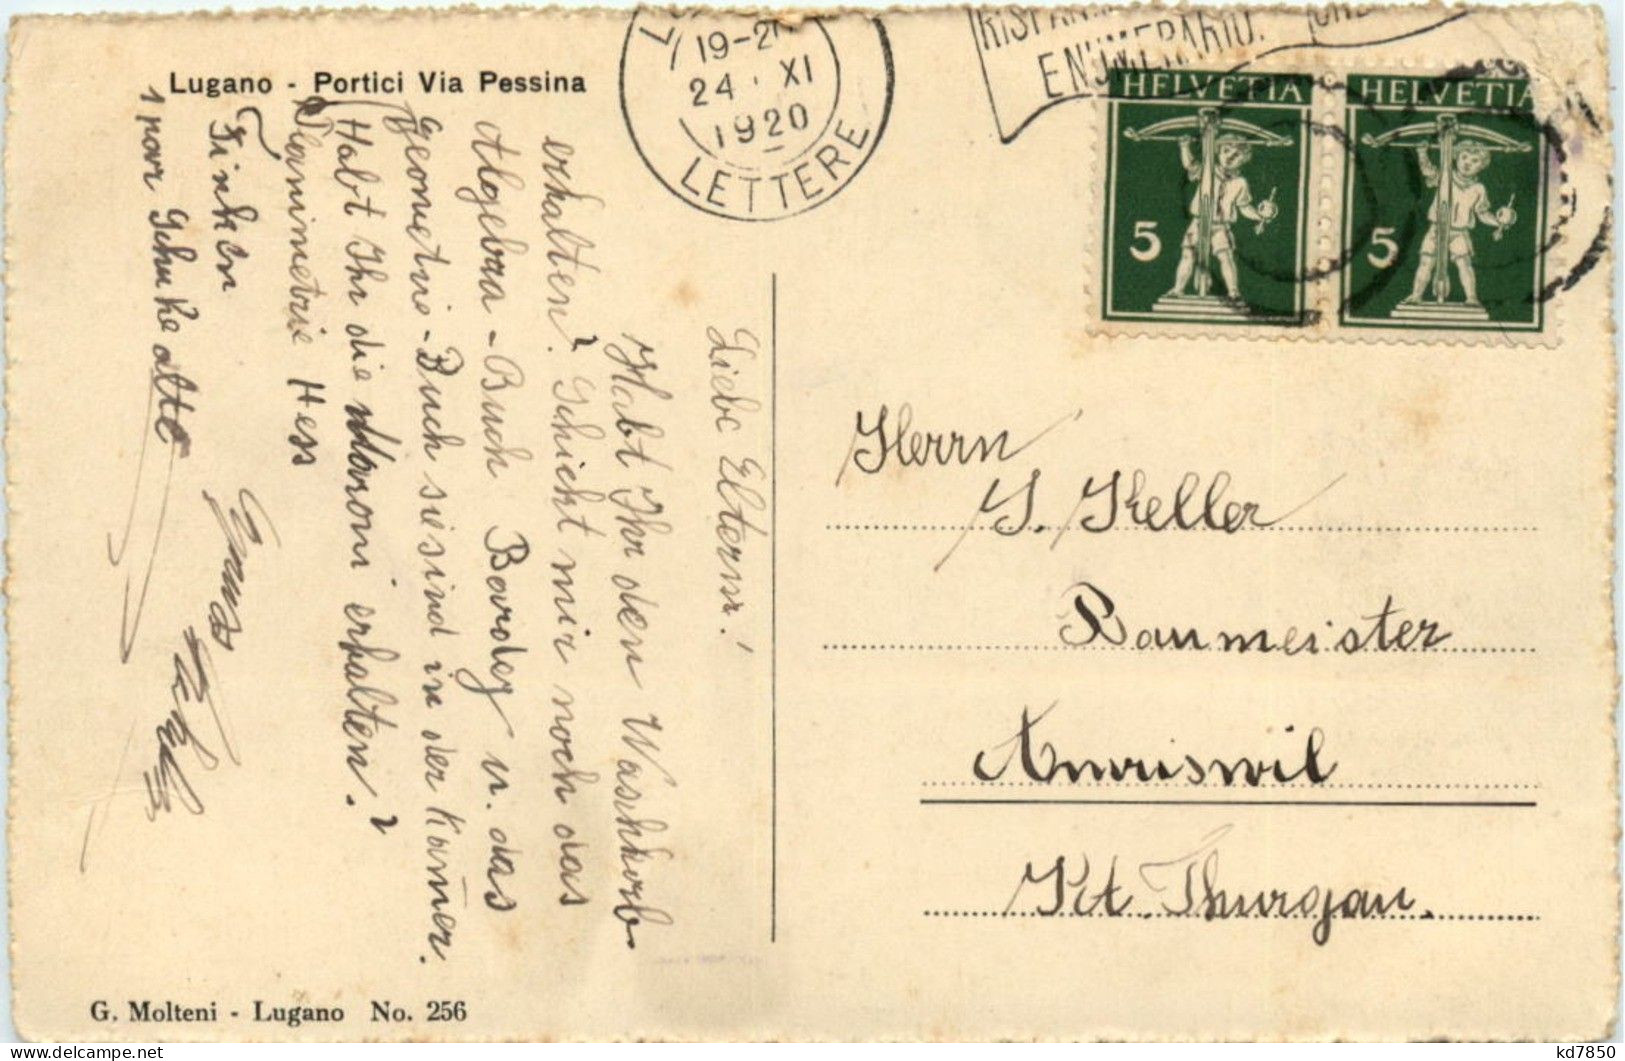 Lugano - Portici Via Pessina
19-2
24 · XI
1920
LETTERE
ENUMERARIO.
HELVETIA
5
HELVETIA
5
Liebe Eltern!
Habt Ihr den Waschkorb
erhalten? Schickt mir noch das
Algebra-Buch Bardey u. das
Geometrie-Buch sie sind in der Kam̄er.
Habt Ihr die Maroni erhalten?
Planimetrie Hess
Finken
1 paar Schuhe alte
Herrn
J. Keller
Baumeister
Amriswil
Kt. Thurgau.
G. Molteni - Lugano No. 256
kd7850